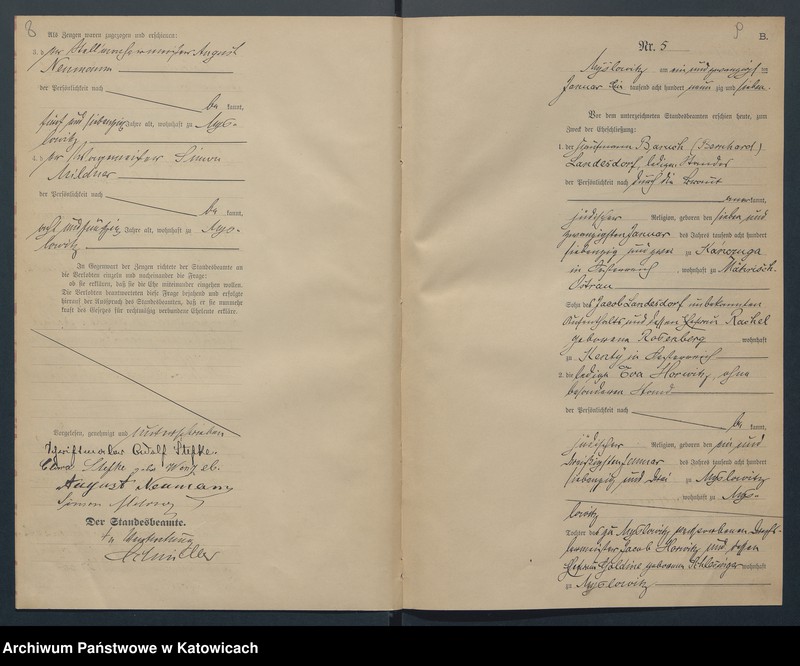 8
Als Zeugen waren zugezogen und erschienen:
3. der Stellmachermeister August
Neumann
der Persönlichkeit nach
be kannt,
fünf und siebenzig Jahre alt, wohnhaft zu Mys-
lowitz
4. der Wagemeister Simon
Mildner
der Persönlichkeit nach
be kannt,
acht und fünfzig Jahre alt, wohnhaft zu Mys-
lowitz
In Gegenwart der Zeugen richtete der Standesbeamte an
die Verlobten einzeln und nacheinander die Frage:
ob sie erklären, daß sie die Ehe miteinander eingehen wollen.
Die Verlobten beantworteten diese Frage bejahend und erfolgte
hierauf der Ausspruch des Standesbeamten, daß er sie nunmehr
kraft des Gesetzes für rechtmäßig verbundene Eheleute erkläre.
Vorgelesen, genehmigt und unterschrieben
Rudolf
Clara geb.
August Neumann
Simon
Der Standesbeamte.
In Vertretung
Schmüller
9
B.
Nr. 5
Myslowitz am ein und zwanzigsten
Januar tausend acht hundert neun zig und sieben.
Vor dem unterzeichneten Standesbeamten erschien heute, zum
Zweck der Eheschließung:
1. der Kaufmann Baruch (Bernhard)
Landesdorf, ledigen Standes
der Persönlichkeit nach durch die Braut
anerkannt,
jüdischer Religion, geboren den sieben und
zwanzigsten Januar des Jahres tausend acht hundert
siebenzig und zwei zu Kanczuga
in Oesterreich, wohnhaft zu Mährisch.
Ostrau
Sohn des Jacob Landesdorf unbekannten
Aufenthalts und dessen Ehefrau Rachel
geborenen Rosenberg wohnhaft
zu Kenty in Oesterreich
2. die ledige Eva Horwitz, ohne
besonderen Stand
der Persönlichkeit nach
be kannt,
jüdischer Religion, geboren den ein und
dreißigsten Januar des Jahres tausend acht hundert
siebenzig und drei zu Myslowitz
, wohnhaft zu Mys-
lowitz
Tochter des zu Myslowitz verstorbenen
Jacob Horwitz und dessen
Ehefrau geborenen Schlesinger wohnhaft
zu Myslowitz
Archiwum Państwowe w Katowicach